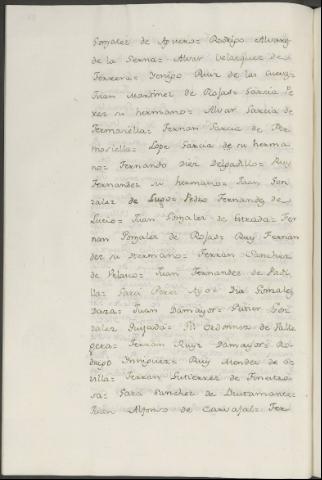 Gonzalez de Aguero= Rodrigo Alvarez
de la Serna= Alvar Velazquez de
Ferrera= Yenigo Ruiz de las Cuevas=
Juan Martinez de Rojas= Garcia Pe
rez su hermano= Alvar Garcia de
Fermosiella= Fernan Garcia de Fer
mosiella= Lope Garcia de su herma
no= Fernando Diez Delgadillo= Ruy
Fernandez su hermano= Juan Gon
zalez de Lugo= Pedro Fernandez de
Lucio= Juan Gonzalez de Estrada= Fer
nan Gonzalez de Rojas= Ruy Fernan
dez su Hermano= Ferran Sanchez
de Velasco= Juan Fernandez de Padi
lla= Garci Perez Ayo= Dia Gonzalez
Daza= Juan Damayor= Gutier Gon
zalez Quijada= Pit Ordonnez de Valle
gera= Ferran Ruyz Damayor= Ro
drigo Ynniguez= Ruy Mendez de Se
villa= Ferran Gutierrez de Finestro
sa= Garci Sanchez de Bustamante=
Juan Alfonso de Carvajal= Fer